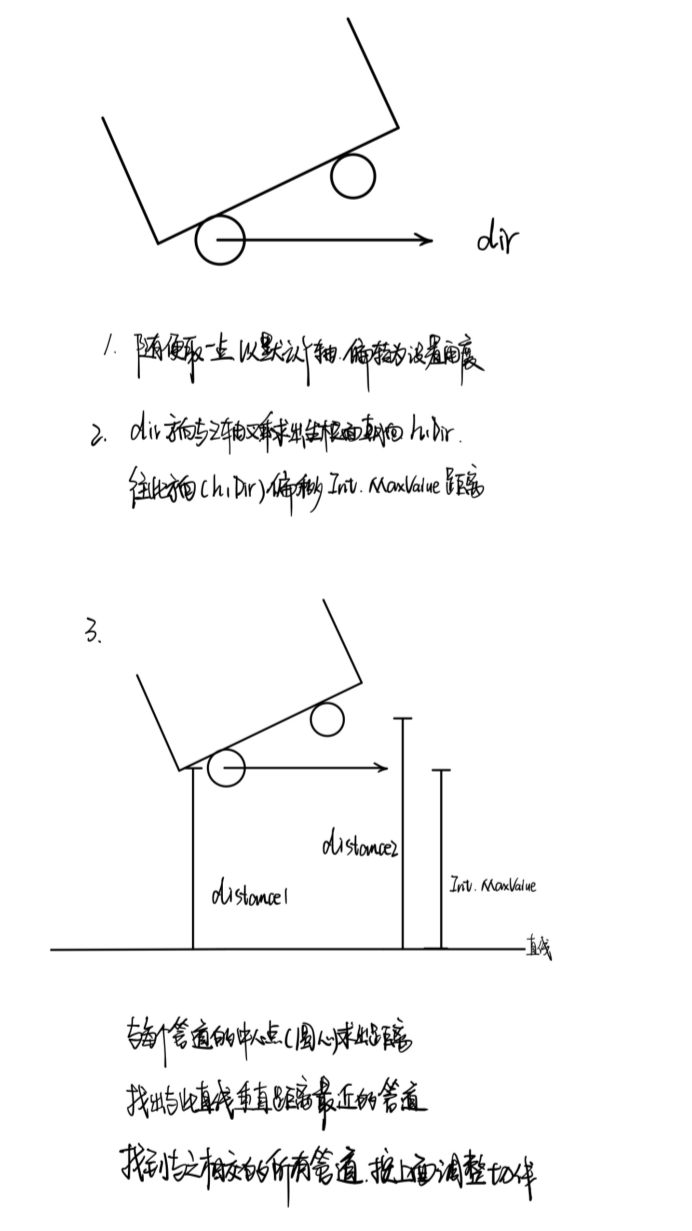 dir
1. 随便取一点 以默认Y轴.偏转为设置角度
2. dir方向与Z轴叉乘求出坐标面朝向 h.Dir.
往此方向(h.Dir)偏移 Int.MaxValue 距离
3.
distance2
Int.MaxValue
distance1
直线
与每个管道的中心点(圆心)求出距离
找出与此直线垂直距离最近的管道
找到与之相交的所有管道.按上面调整切伴